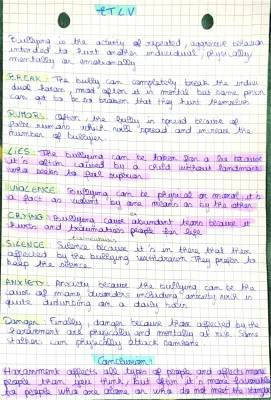 Bullying is the activity of repeated, agressive behavior
intended to hurt another individual, physically
mentally or emotionally
BREAK: The bully can completely break the indivi
dual harass, most often it is mental but some person
can get to be so broken that they hurt themselves
RUMORS: Often, the bully is spread because of
false rumors which will spread and increase the
number of bullyer
LIES: The bullying can be taken for a lie because
it's often caused by a child without landmarks
who seeks to feel superior
VIOLENCE: Bullying can be physical or moral, it's
a fact as violent by one means or by the other
CRYING: Bullying cause abundant tears because it
hurts and traumatises people for life
SILENCE: Silence because it's in there that the
affected by the bullying withdrawn. They prefer to
keep the silence.
ANXIETY: Anxiety because the bullying can be the
cause of many disorders including anxiety which is
quite disturbing on a daily basis
Danger: Finally, danger because those affected by the
harassment are physically and mentally at risk. Some
stalker can physically attack someone
Conclusion:
Harassment affects all types of people and affects more
people than you think, but often it is more favorable
to people who are alone or who do not meet the